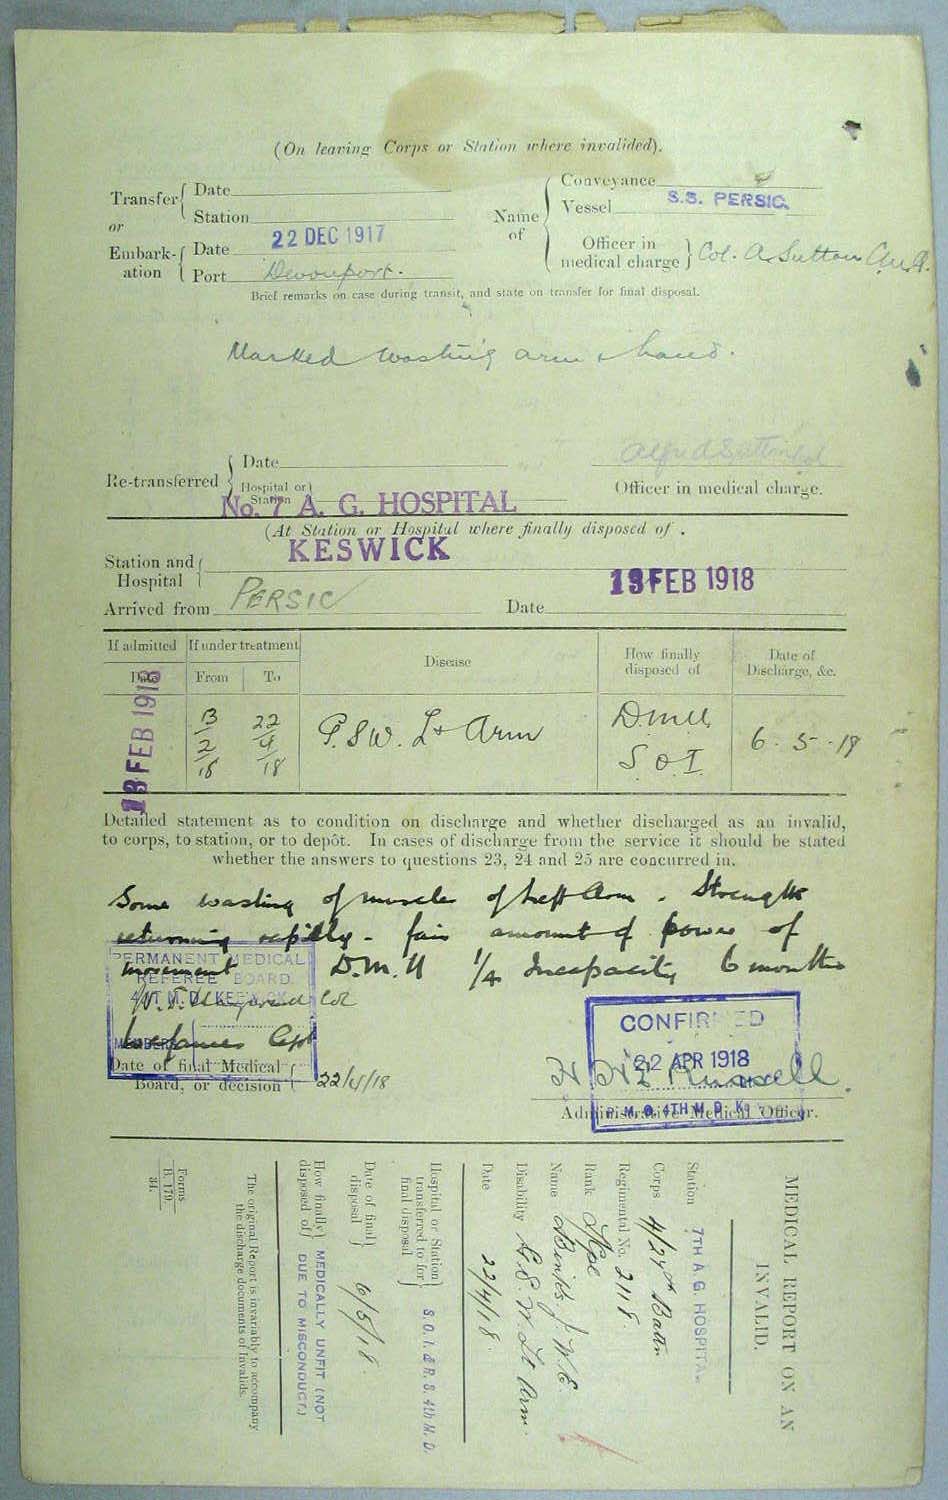 (On leaving Corps or Station where invalided).
Transfer or Embark-ation
Date
Station
Date 22 DEC 1917
Port Devonport.
Name of
Conveyance
Vessel S.S. PERSIC.
Officer in medical charge } Col. A. Sutton
Brief remarks on case during transit, and state on transfer for final disposal.
Marked wasting arm & hand.
Re-transferred
Date
Hospital or Station
Alfred Sutton Col
Officer in medical charge.
No. 7 A. G. HOSPITAL
(At Station or Hospital where finally disposed of .
KESWICK
Station and Hospital
Arrived from PERSIC
Date 13 FEB 1918
If admitted
If under treatment
Disease
How finally disposed of
Date of Discharge, &c.
Date
From
To
13 FEB 1918
13/2/18
22/4/18
G.S.W. Lt Arm
D.M.U.
S.O.I.
6-5-18
Detailed statement as to condition on discharge and whether discharged as an invalid,
to corps, to station, or to depôt. In cases of discharge from the service it should be stated
whether the answers to questions 23, 24 and 25 are concurred in.
Some wasting of muscles of Left Arm. Strength
returning rapidly - fair amount of power of
movement D.M.U 1/4 Incapacity 6 months
PERMANENT MEDICAL
REFEREE BOARD
4TH M.D. KESWICK
Col
MEMBERS
Capt
Date of final Medical
Board, or decision 22/4/18
CONFIRMED
22 APR 1918
Russell.
P.M.O. 4TH M.D. K
Administrative Medical Officer.
MEDICAL REPORT ON AN
INVALID.
Station 7TH A G. HOSPITAL
Corps 4/27th Battn
Regimental No. 2118.
Rank
Name J. W. E.
Disability G.S.W Lt Arm.
Date 22/4/18.
Hospital or Station
transferred to for
final disposal
S.O.I. & R.S. 4th M. D.
Date of final
disposal
6/5/18.
How finally
disposed of
MEDICALLY UNFIT (NOT
DUE TO MISCONDUCT.)
The original Report is invariably to accompany
the discharge documents of Invalids.
Forms
B. 179.